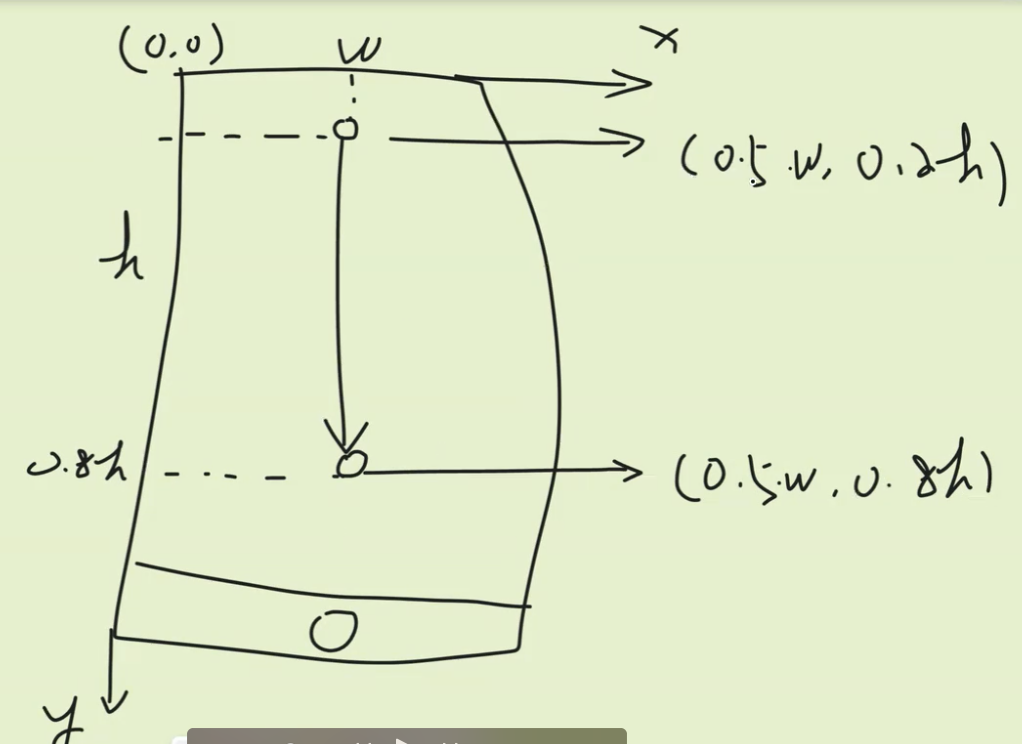 (0.0)
w
x
(0.5w, 0.2h)
h
0.8h
(0.5w, 0.8h)
y